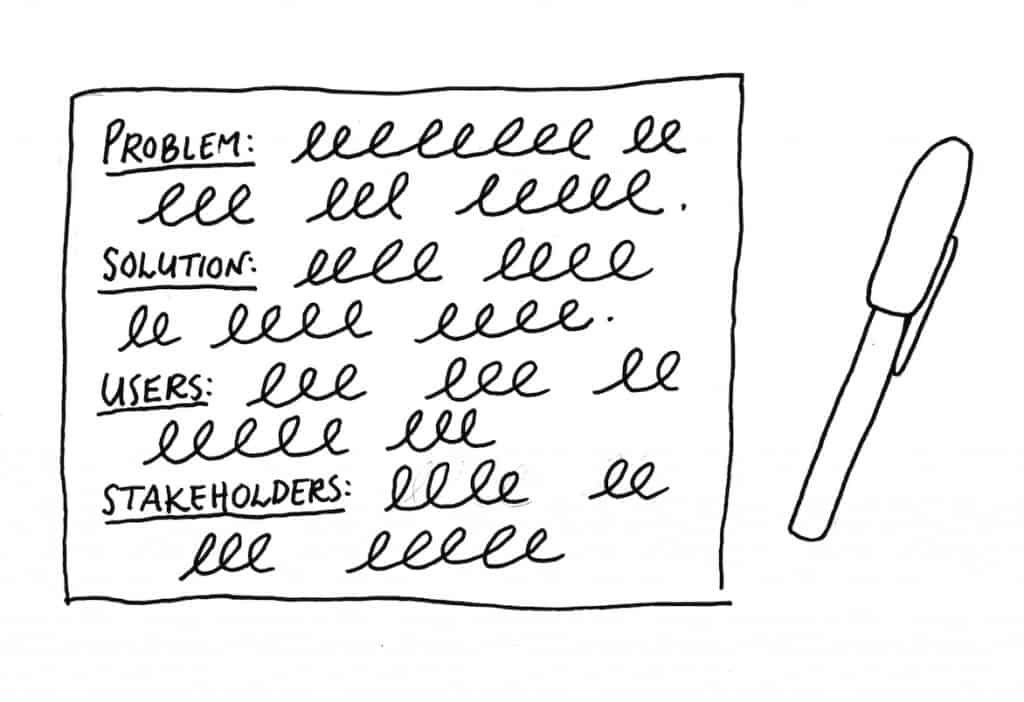 PROBLEM:
SOLUTION:
USERS:
STAKEHOLDERS: